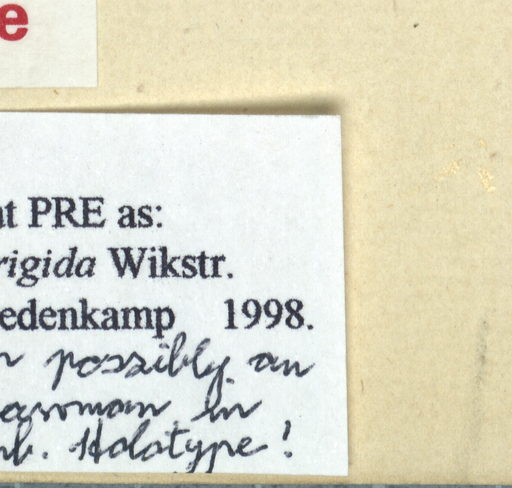 e
at PRE as:
rigida Wikstr.
edenkamp 1998.
n possibly an
in
b. Holotype!